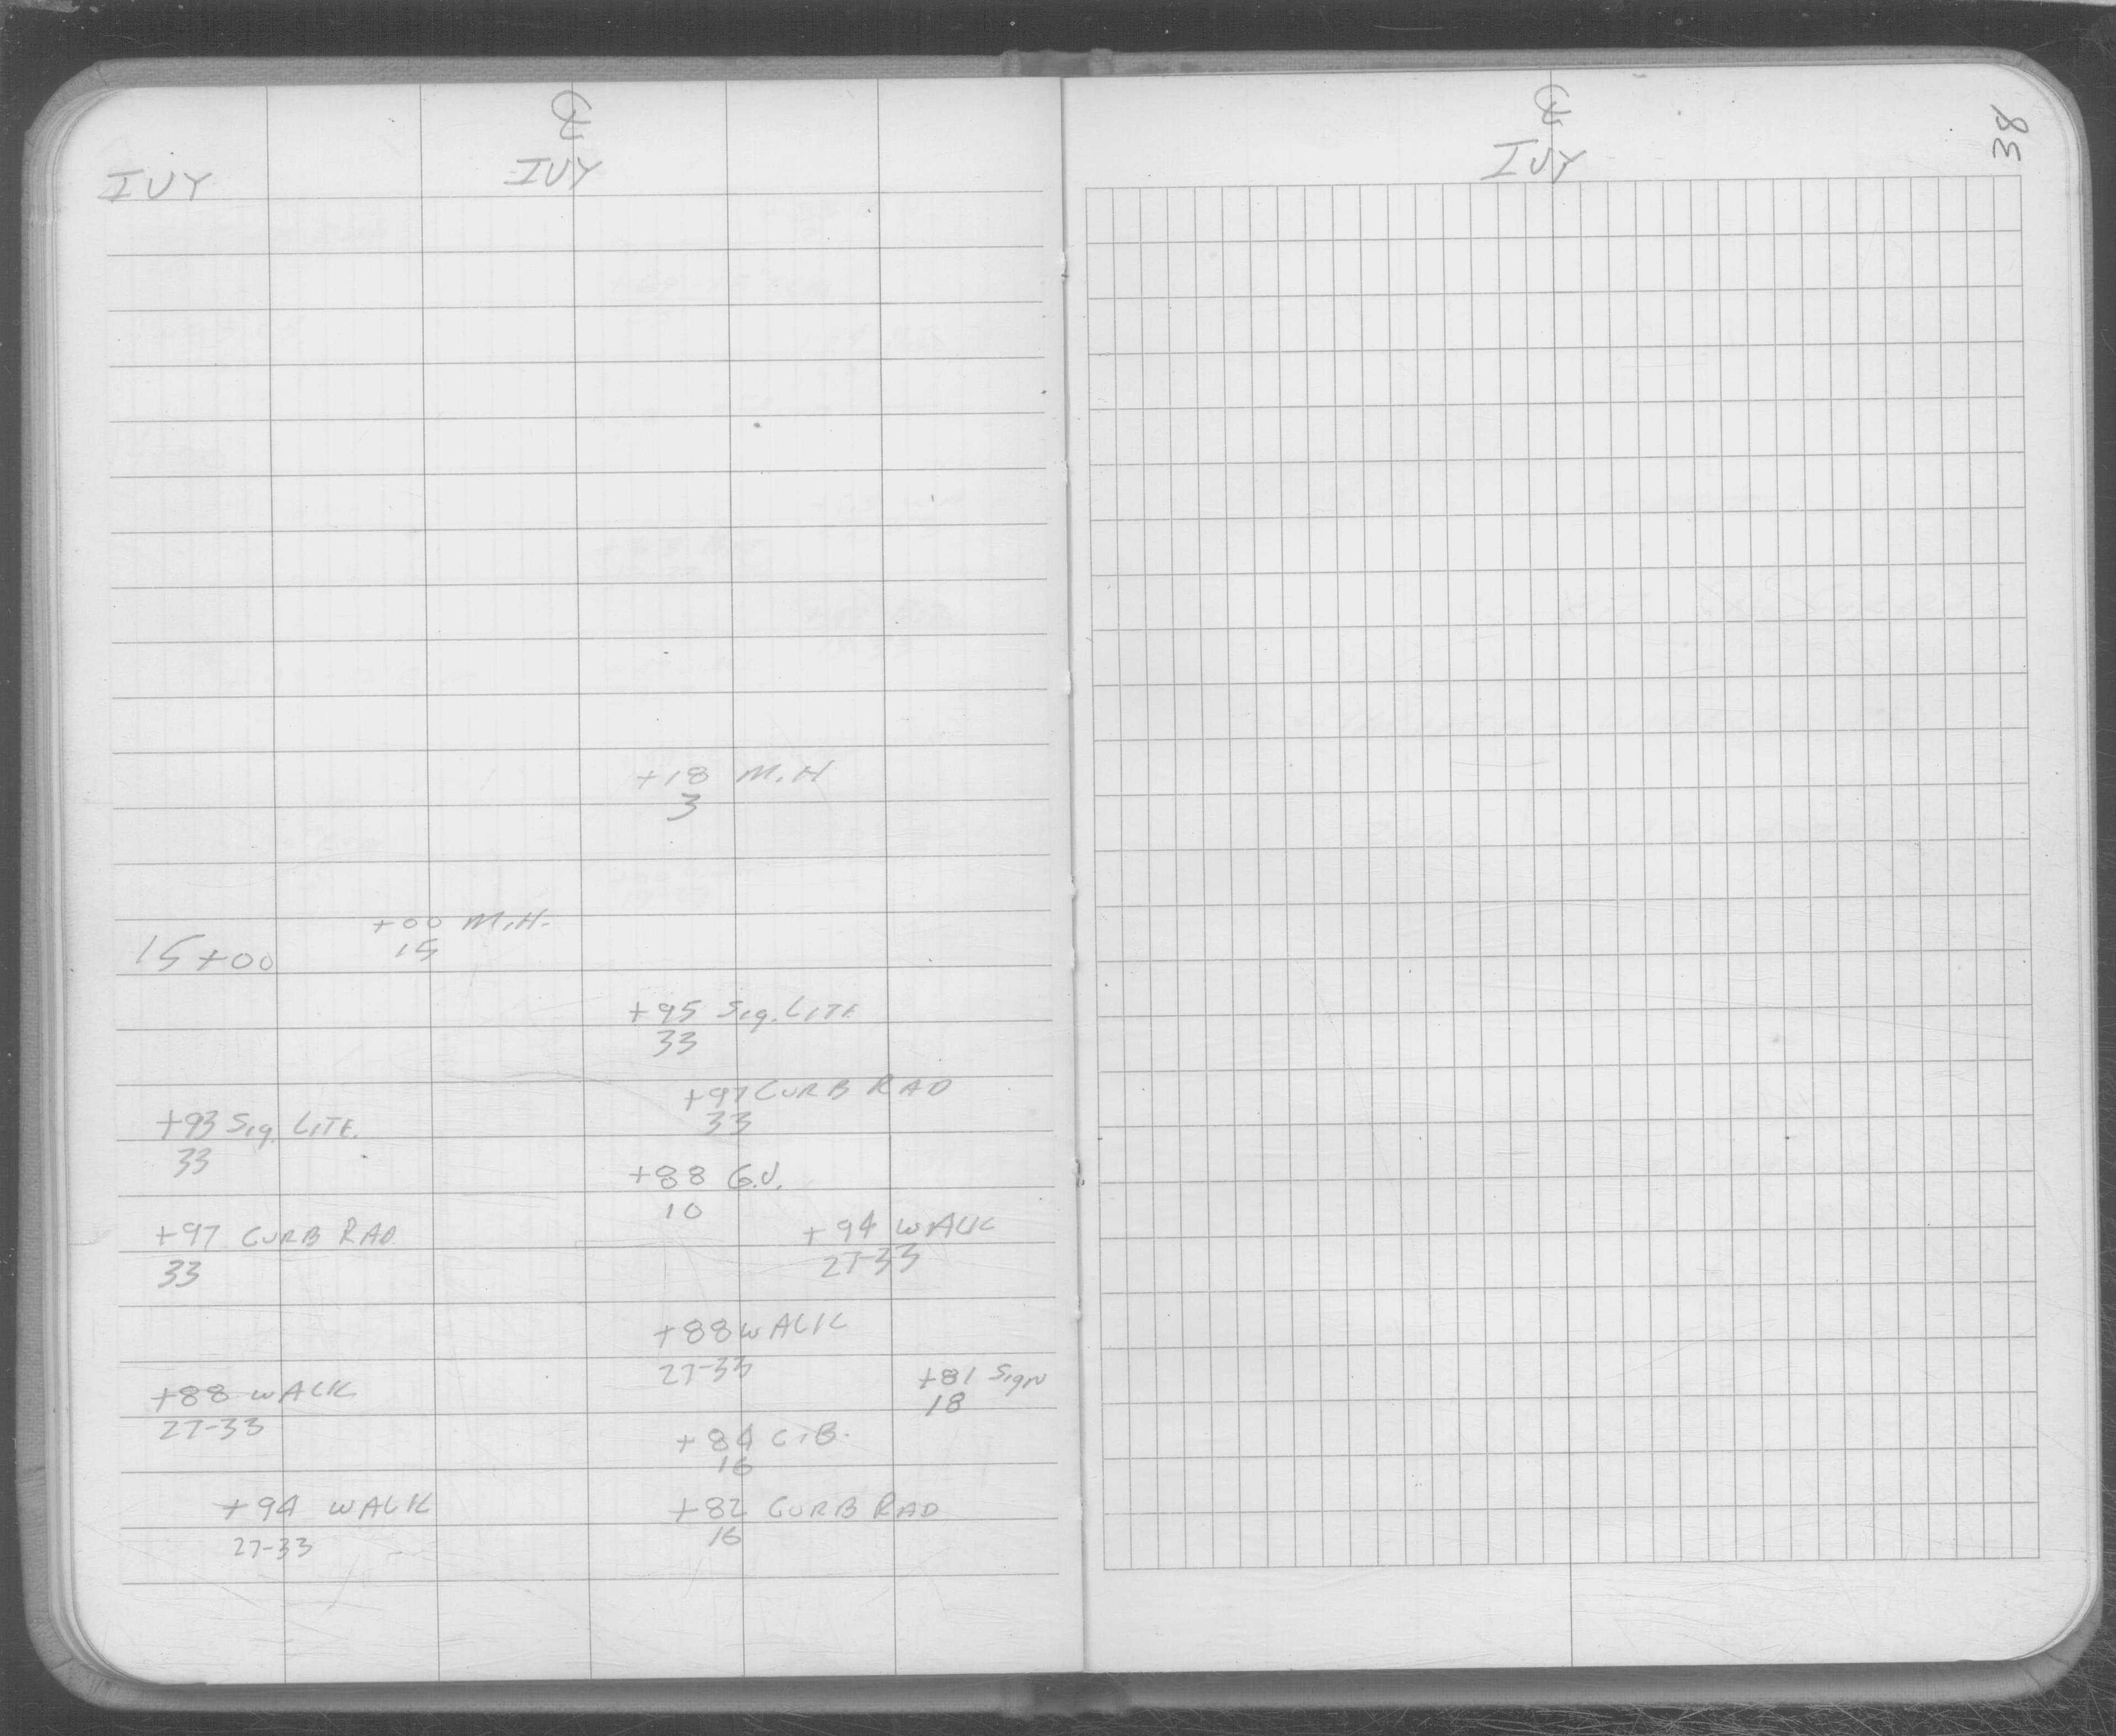 ℄
IVY IVY
+18 M.H
3
+00 M.H.
15+00 15
+95 Sig. LITE
33
+97 CURB RAD
33
+93 Sig. LITE.
33
+88 G.V.
10
+97 CURB RAD
33
+94 WALK
27-33
+88 WALK
27-33
+81 Sign
18
+88 WALK
27-33
+84 C.B.
16
+94 WALK
27-33
+82 CURB RAD
16
℄
IVY
38